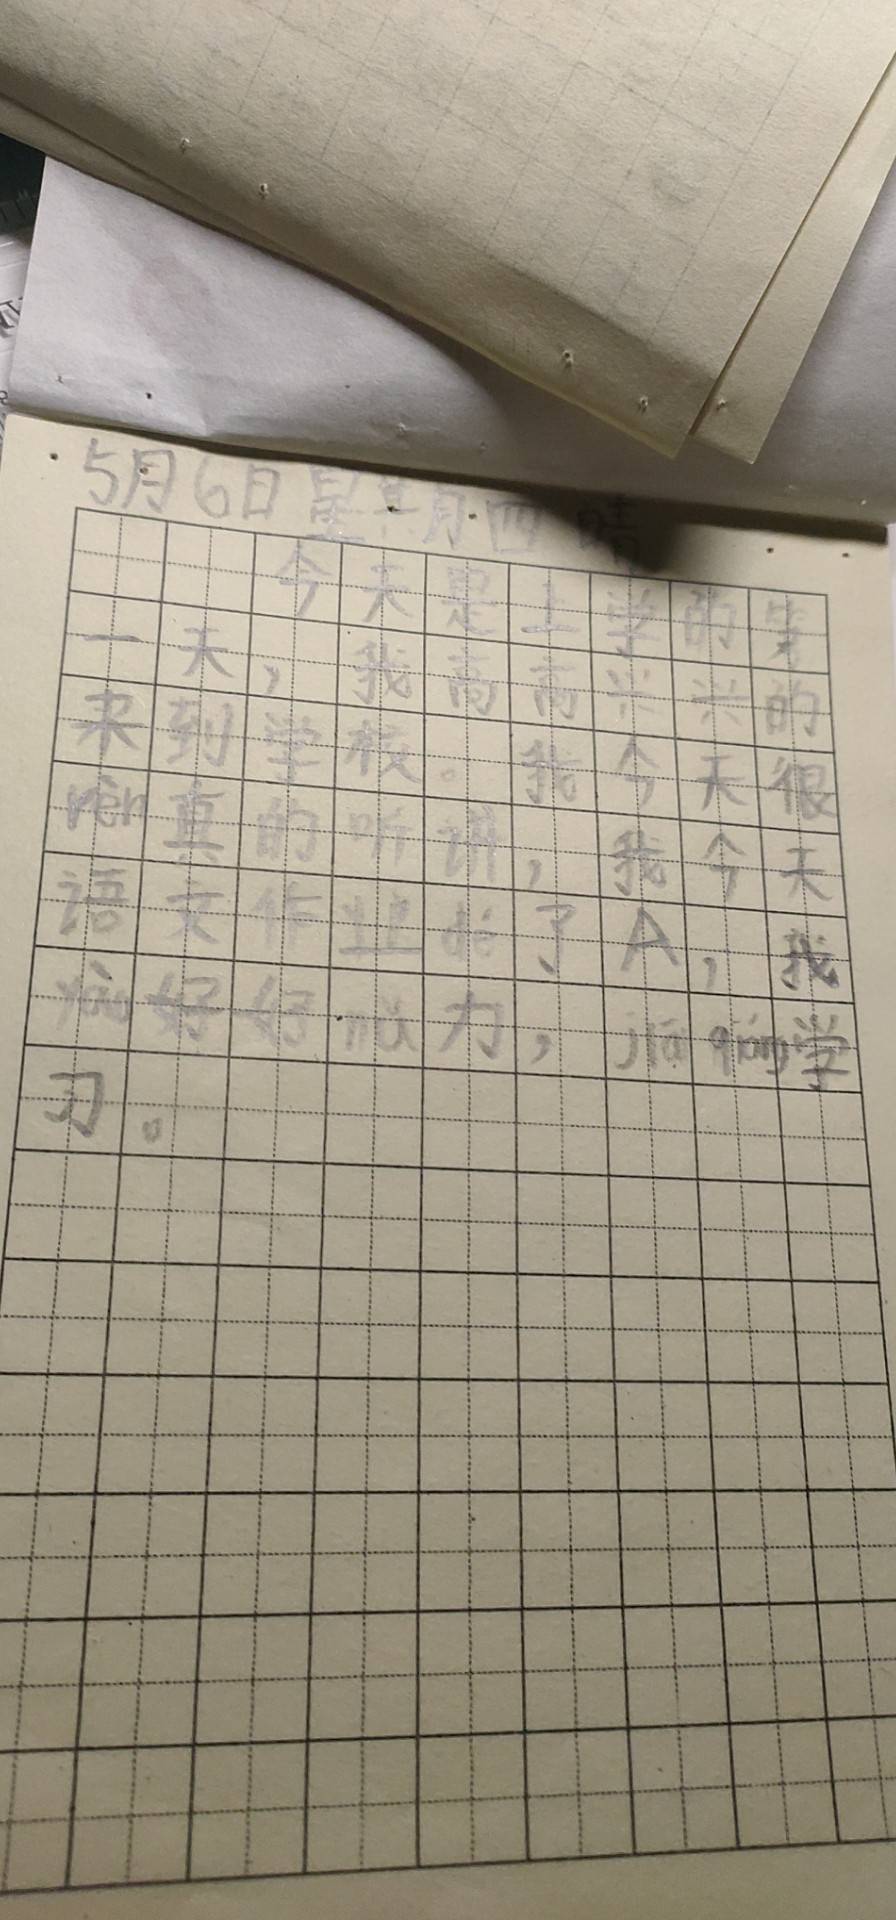 5月6日星期四 晴
今天是上学的第
一天，我高高兴兴的
来到学校。我今天很
rèn真的听讲，我今天
语文作业得了A，我
yào好好 力，jiā qiáng学
习。